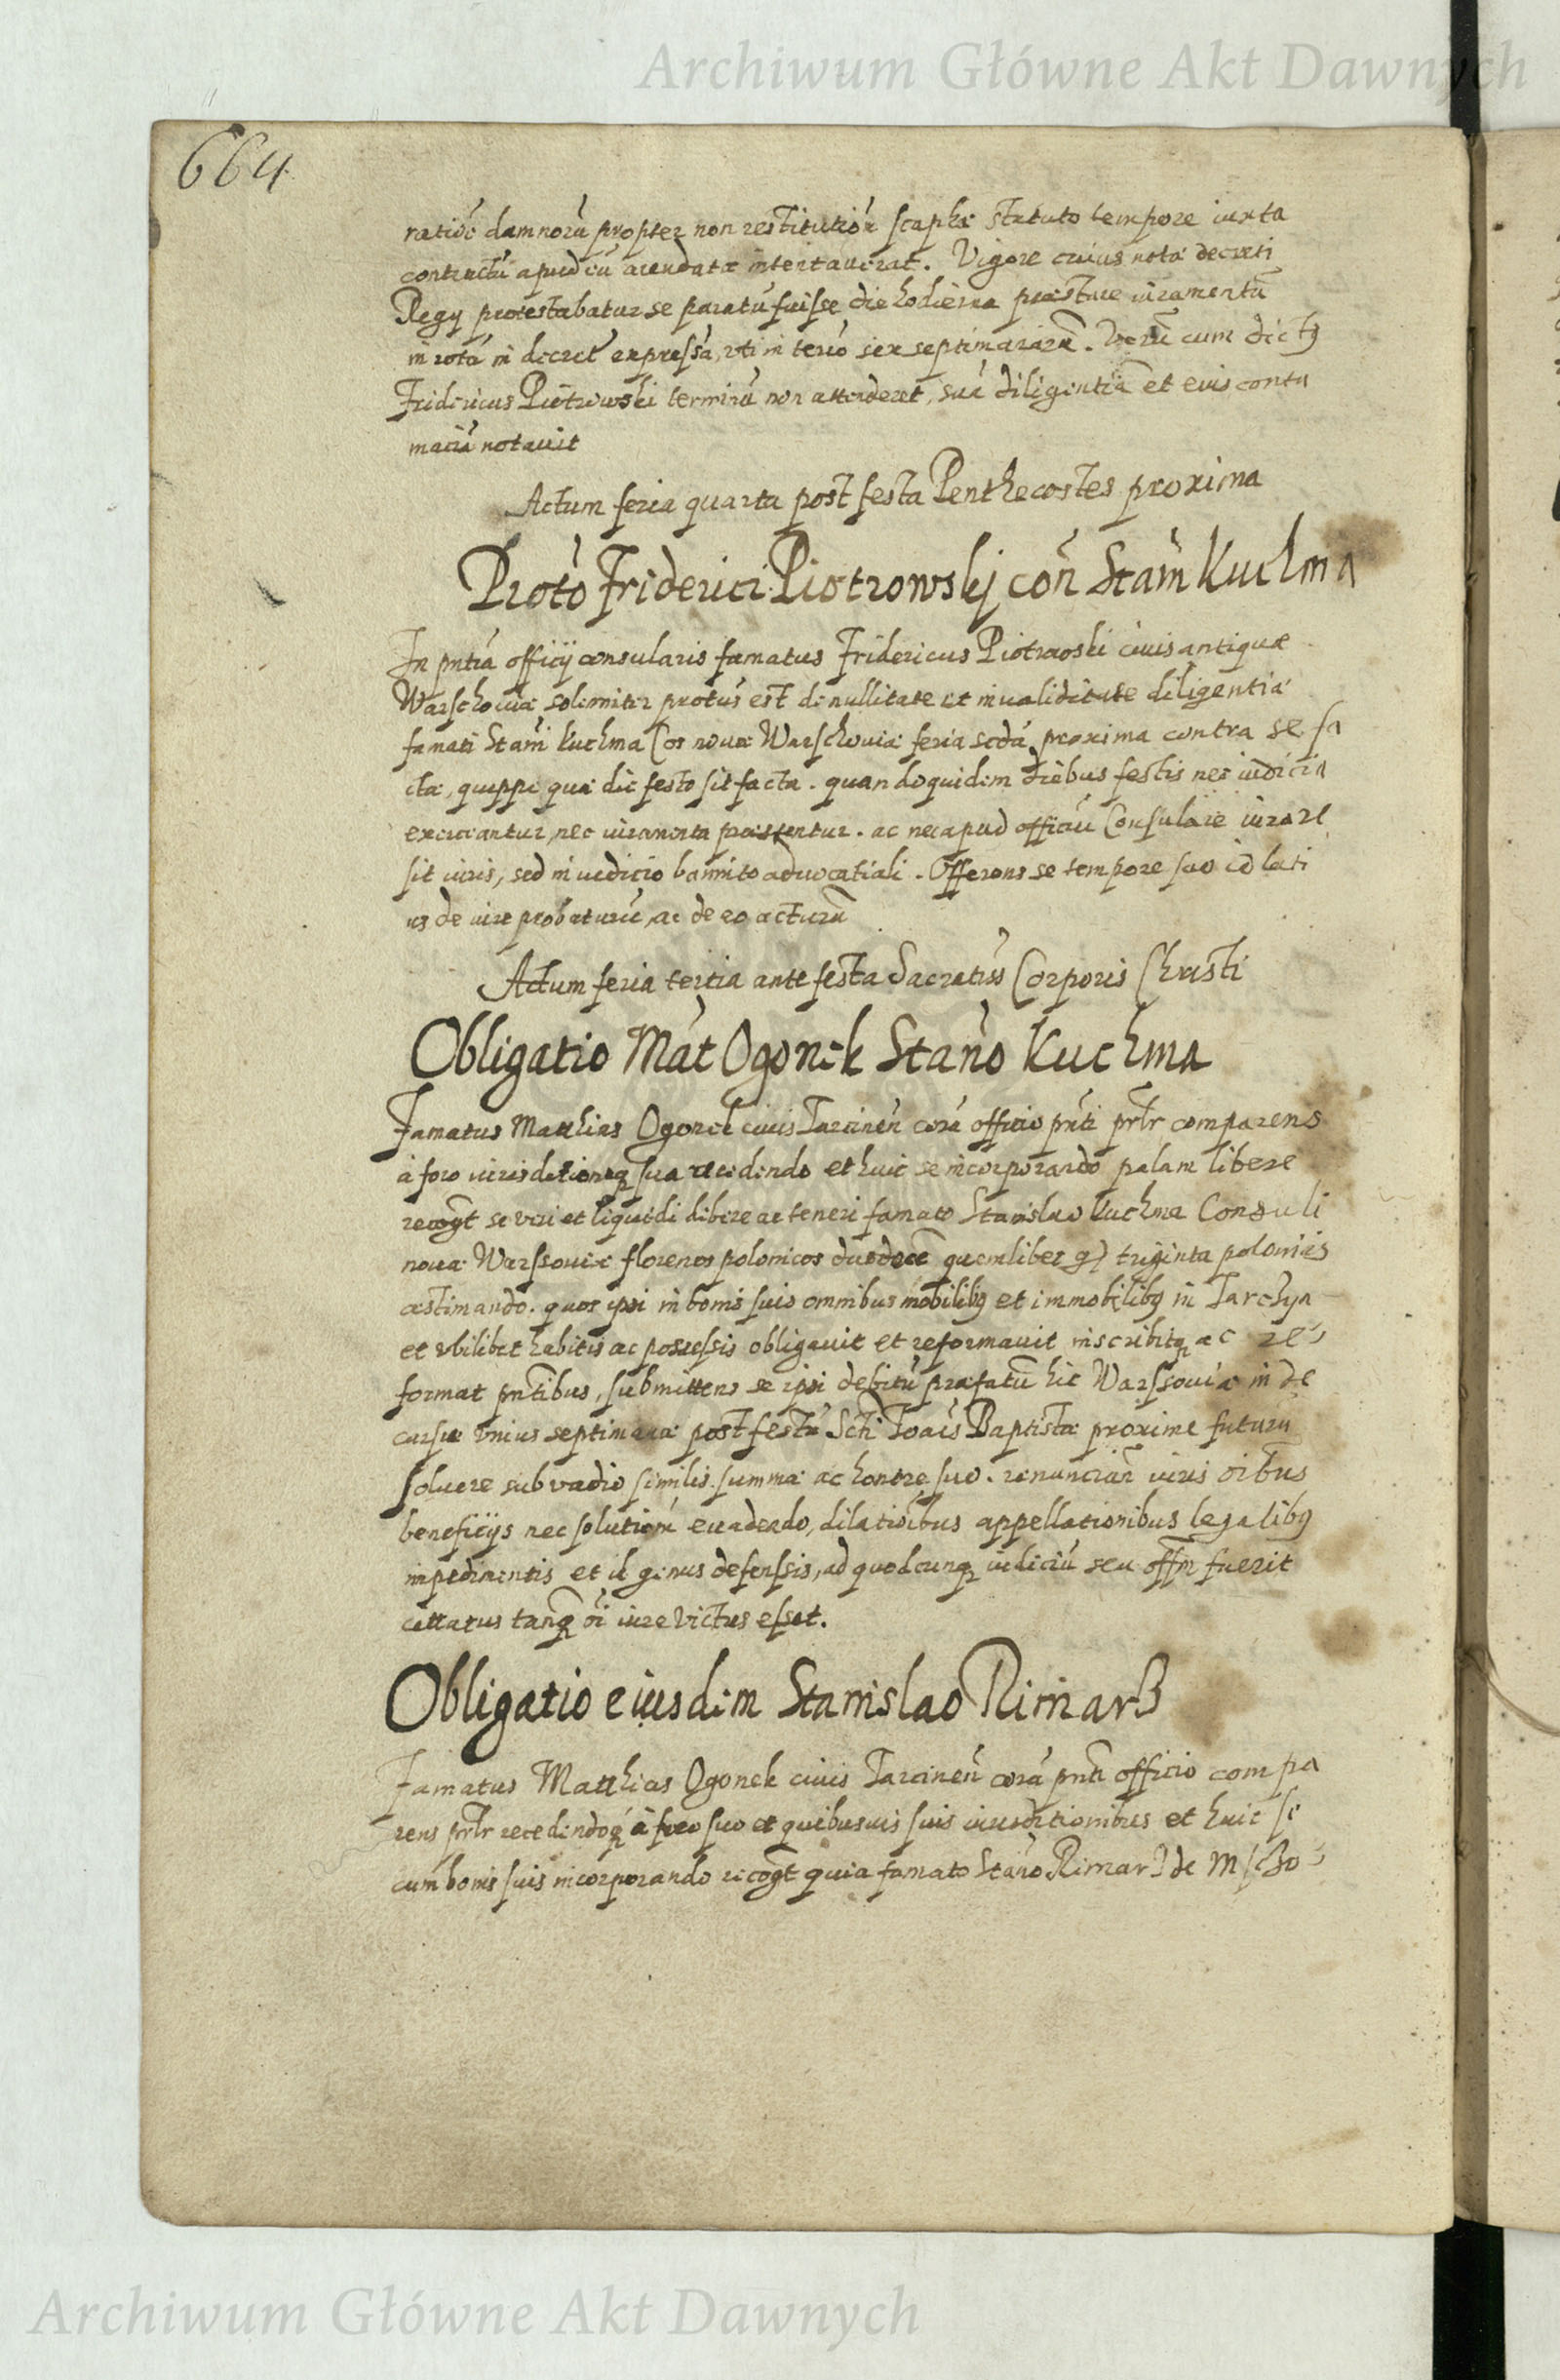 Archiwum Główne Akt Dawnych
664
ratiōe damnorū propter non restitutiōn scaphæ statuto tempore iuxta
contractū apud eū arendatæ intentauerat. Vigore cuius notæ decreti
Regij protestabatur se paratū fuisse die hodierna præstare iuramentū
in rota in decret expressa, vti in termō sex septimanarū. Verū cum dictus
Fridericus Piotrowski terminū non attenderet, suā diligentiā et eius contu
maciā notauit
Actum feria quarta post festa Penthecostes proxima
Protō Friderici Piotrowskj con̄ Stani Kuchma
In pntia officij consularis famatus Fridericus Piotrowski ciuis antiquæ
Warschouiæ solemniter protus est de nullitate et inualiditate diligentiæ
famati Stani Kuchma Cos nouæ Warschouiæ feria scda proxima contra se fa
ctæ, quippe quæ die festo sit facta. quandoquidem diebus festis nec iudicia
exerceantur, nec iuramenta præstentur. ac nec apud officiū Consulare iurare
sit iuris, sed in iudicio bannito aduocatiali. Offerens se tempore suo id lati
us de iure probaturū, ac de eo acturū
Actum feria tertia ante festa Sacratiss Corporis Christi
Obligatio Mat Ogonek Stano Kuchma
Famatus Matthias Ogonek ciuis Tarcinen̄ corā officio pn̄ti prlr comparens
à foro iurisditioneq sua recedendo et huic se incorporando palam libere
recogt se veri et liquidi debere ac teneri famato Stanislao Kuchma Consuli
nouæ Warssouiæ florenos polonicos duodecē quemlibet triginta polonies
æstimando. quos ipsi in bonis suis omnibus mobilibq et immobilibq in Tarchyn
et vbilibet habitis ac possessis obligauit et reformauit inscribitq ac re
format pntibus, submittens se ipsi debitū præfatū hic Warssouiæ in de
cursu vnius septimanæ post festū Scti Joais Baptistæ proxime futurū
soluere sub vadio similis summæ ac honore suo. renuncian̄ iuris oībus
beneficijs nec solutionē euadendo, dilatioībus appellationibus legalibq
impedimentis et id genus defensis, ad quodcunq iudiciū seu offm fuerit
cittatus tanq oi iure victus esset.
Obligatio eiusdem Stanislao Rimarz
Famatus Matthias Ogonek ciuis Tarcinen̄ corā pnti officio compa
rens prlr recedendoq à foro suo et quibusuis suis iurisditionibus et huic se
cum bonis suis incorporando recogt quia famato Stano Rimarz de Mszczo
Archiwum Główne Akt Dawnych